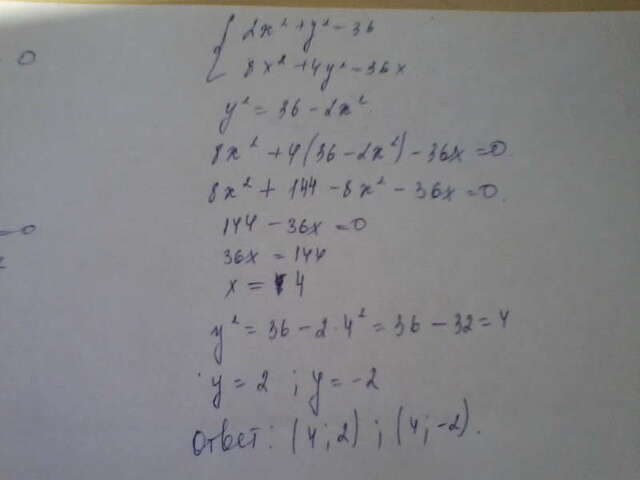 0
{ 2x² + y² - 36
8x² + 4y² - 36x
y² = 36 - 2x²
8x² + 4(36 - 2x²) - 36x = 0.
8x² + 144 - 8x² - 36x = 0.
=0
144 - 36x = 0
36x = 144
x = 4
y² = 36 - 2·4² = 36 - 32 = 4
y = 2 ; y = -2
Ответ: (4; 2) ; (4; -2).